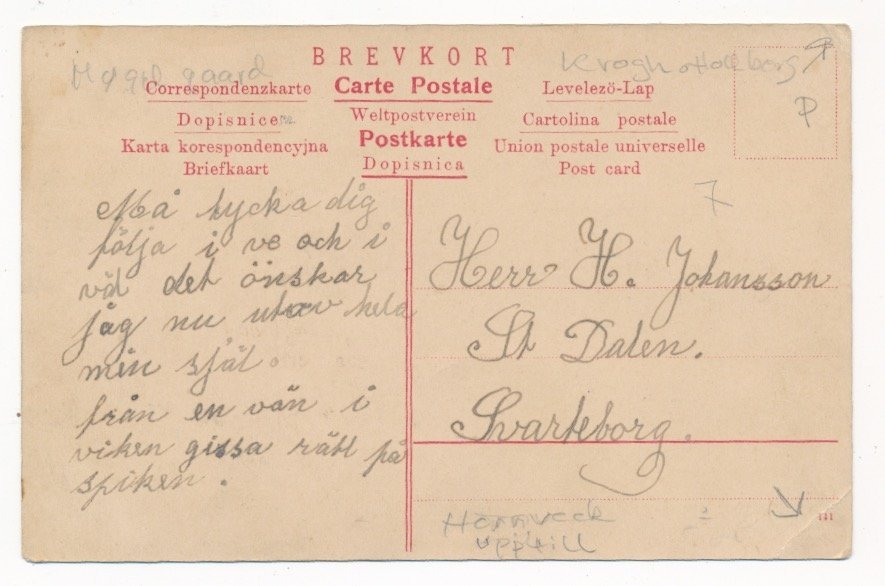 BREVKORT
Krogh
Correspondenzkarte Carte Postale Levelezö-Lap
P
Dopisnice Weltpostverein Cartolina postale
Karta korespondencyjna Postkarte Union postale universelle
Briefkaart Dopisnica Post card
7
Må lycka dig
följa i ve och i
väl det önskar
jag nu utav hela
min själ
från en vän i
viken gissa rätt på
spiken.
Herr H. Johansson
St Dalen.
Svarteborg.
upptill